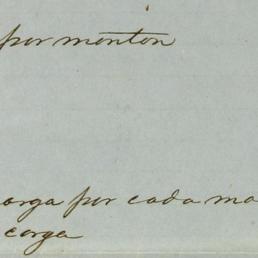 por monton
carga por cada mo
carga